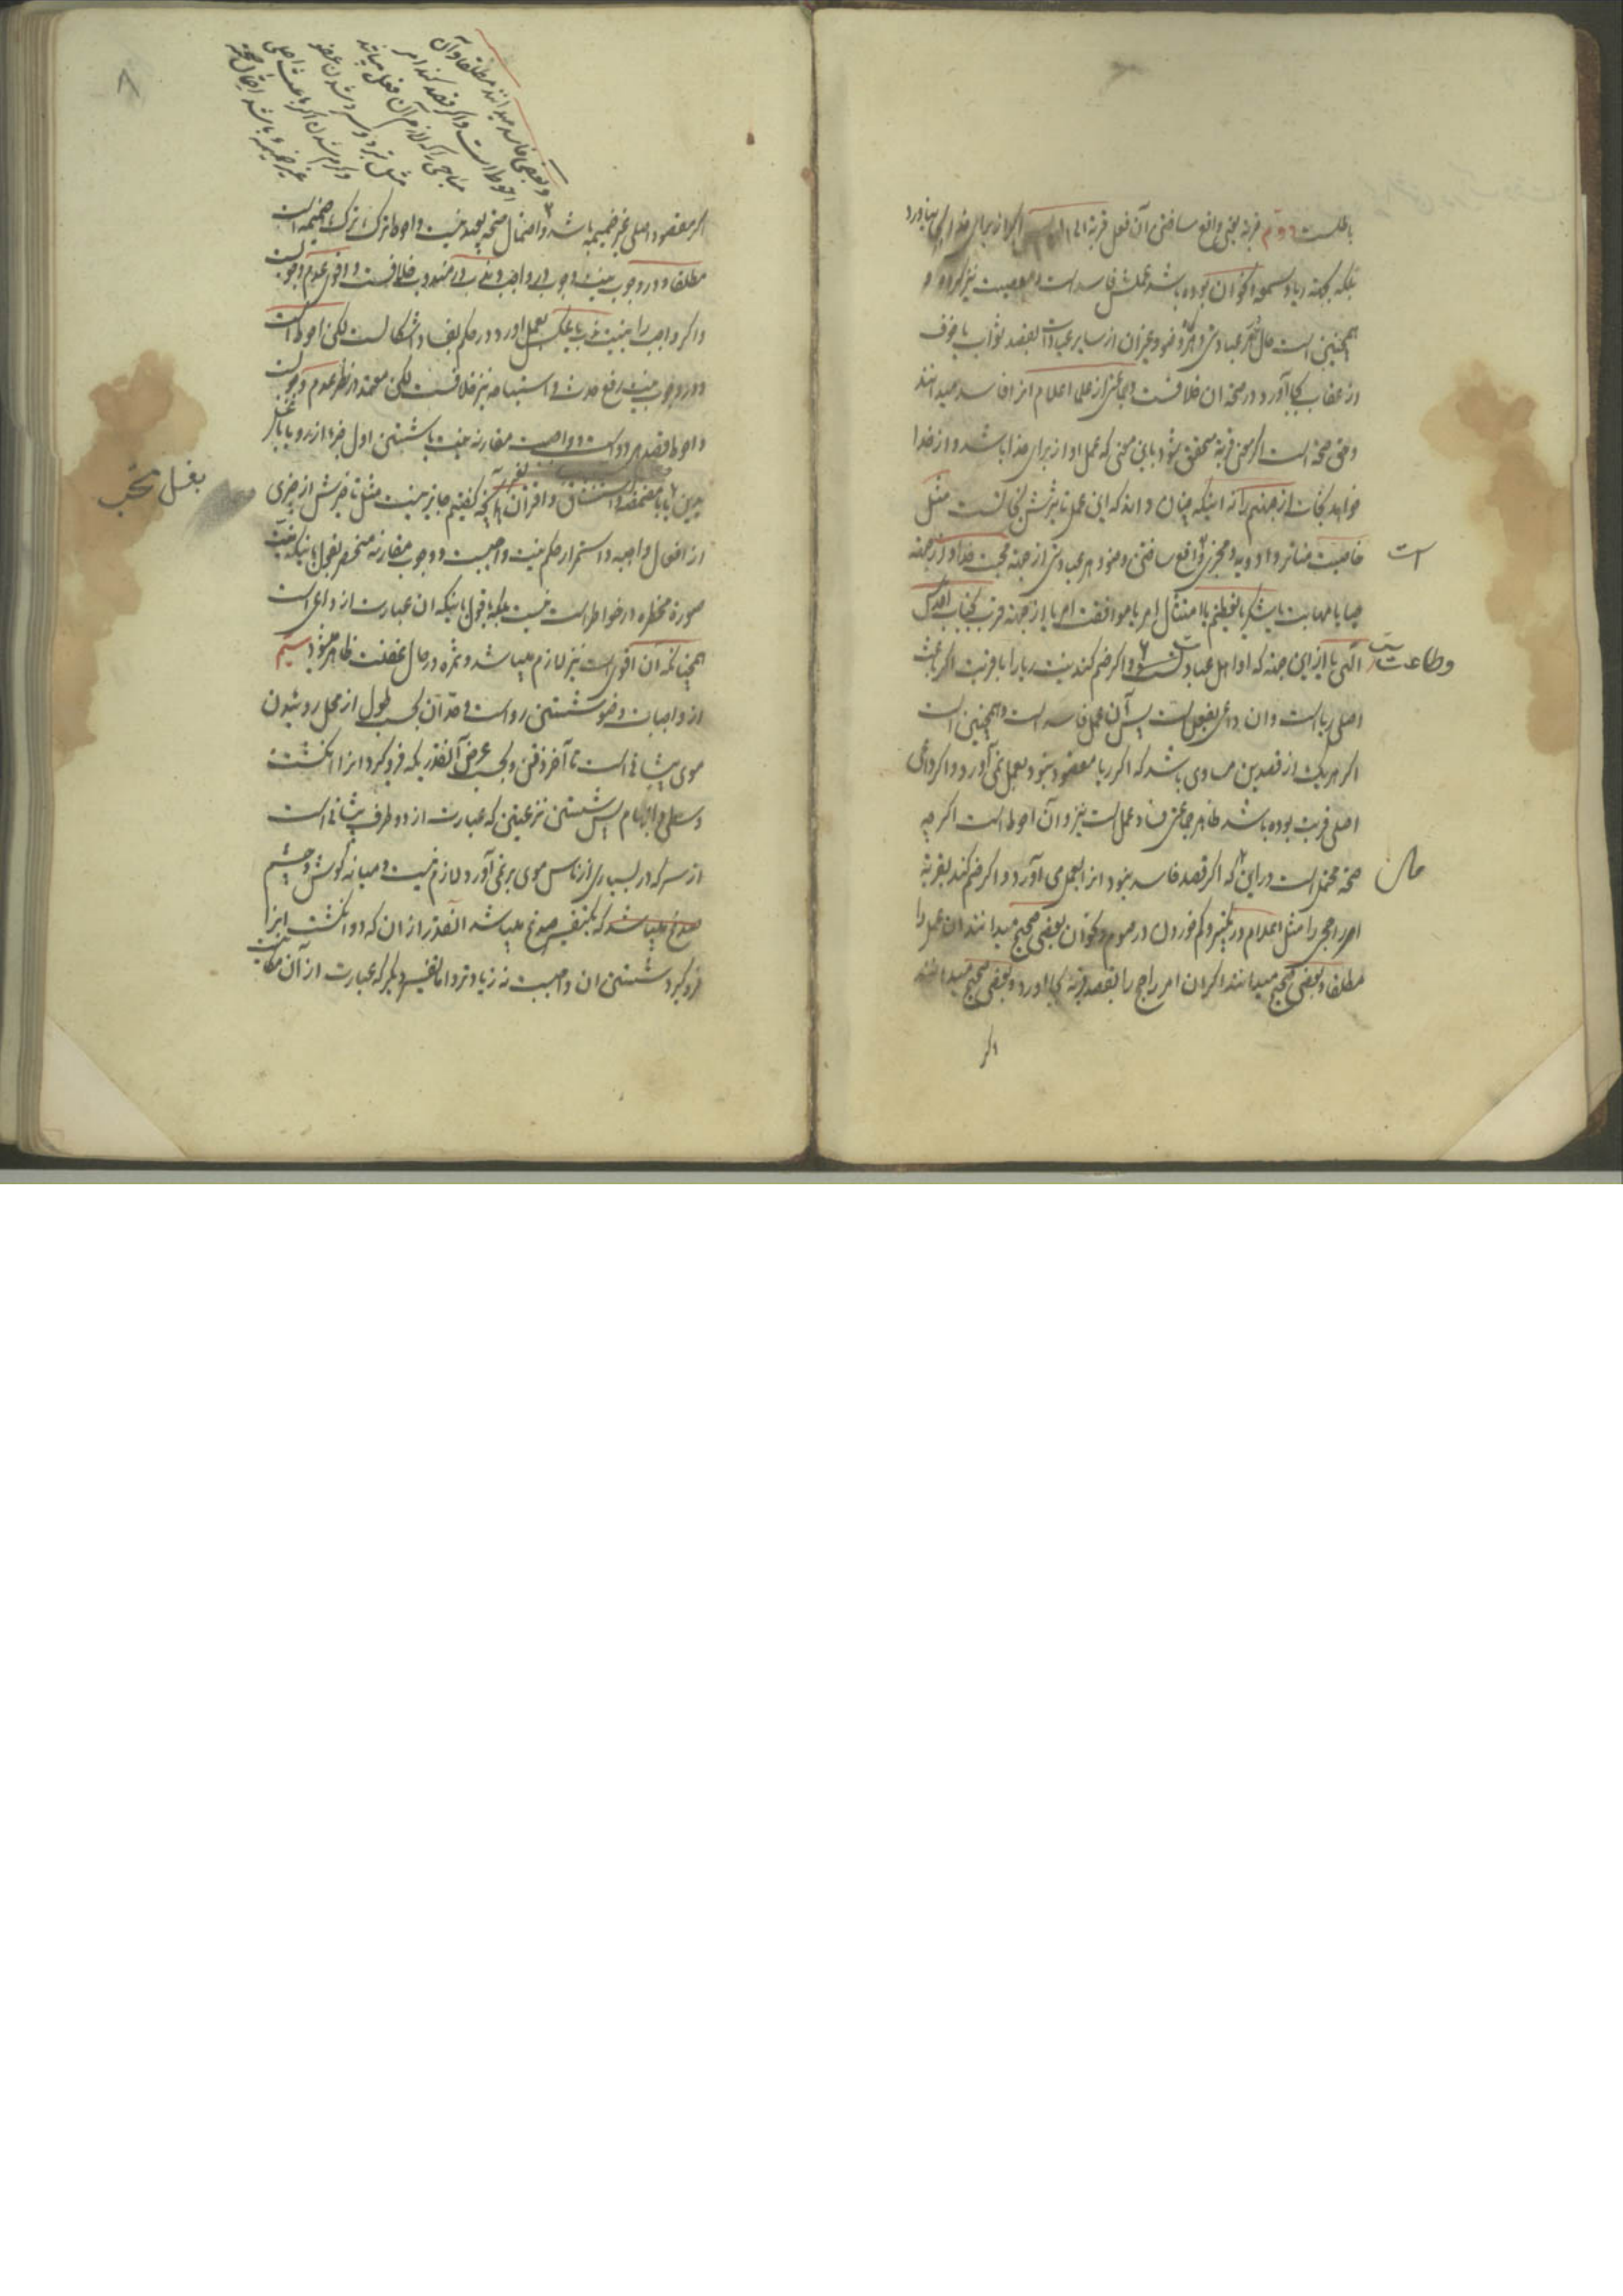 باطلست دویم قربة یعنی واقع ساختن آن فعل قربة الی الله پس اگر از برای خدای بجا نیاورد
بلکه بجهة ریا و سمعه و نحو ان بوده باشد عملش فاسد است و معصیت نیز کرده و
همچنین است حال هر عبادتی و هرگاه وضو و غیر ان از سایر عبادات بقصد ثواب یا خوف
از عقاب بجا آورد در صحة ان خلافست و جماعتی از علماء اعلام انرا فاسد میدانند
و حق صحة است اگر معنی قربة متحقق شود باین معنی که عمل او از برای خدا باشد و از خدا
خواهد نجات از جهنم را نه اینکه چنان داند که این عمل تاثیرش نجاتست مثل
خاصیت عناصر و ادویه و مجزی است واقع ساختن وضو و هر عبادتی از جهة محبت خدا و از جهة
حیا یا مهابت یا شکر یا تعظیم یا امتثال امر یا موافقت امر یا از جهة قرب بجناب اقدس
الهی یا از این جهة که او اهل عبادت و طاعتست و اگر ضم کند نیت ریا را با قربت اگر باعث
اصلی ریا است و ان داعی بفعل است پس آن عمل فاسد است و همچنین است
اگر هر یک از قصدین مساوی باشد که اگر ریا مقصود نبود بعمل نمی آورد و اگر داعی
اصلی قربت بوده باشد ظاهر جماعتی فساد عمل است نیز و آن احوط است اگر چه
صحة محتمل است در این حال که اگر قصد فاسد نبود انرا بعمل می آورد و اگر ضم کند بقربة
امر راجحی را مثل اعلام در تکبیر و کم خوردن در صوم و نحو ان بعضی صحیح میدانند ان عمل را
مطلقا و بعضی صحیح میدانند اگر ان امر راجح را بقصد قربة بجا اورد و بعضی صحیح میدانند
اگر
است
وطاعت
حال
۸
و بعضی فاسد میدانند مطلقا و آن
احوط است و اگر قصد کند امر
مباحی را که لازم آن فعل میباشد
مثل تبرد و سرد شدن عضو
و گرم شدن اگر باعث اصلی
غیر ضمیمه باشد احتمال صحة
اگر مقصود اصلی غیر ضمیمه باشد و احتمال صحة بعید نیست و احوط ترک ضمیمه است
مطلقا و در وجوب نیت وجوب در واجب و ندب در مندوب خلافست و اقوی عدم وجوبست
و اگر واجب را بنیت ندب یا عکس بعمل اورد در حکم بفساد اشکالست لکن احوط است
و در وجوب نیت رفع حدث و استباحه نیز خلافست لکن معتمد در نظر عدم وجوبست
و احوط قصد هر دو است و واجبست مقارنه نیت با شستن اول جزء از رو یا با غسل
یدین یا با مضمضه و استنشاق و اقتران بغیر آنچه گفتیم جایز نیست مثل تاخیرش از جزئی
از افعال واجبه و استمرار حکم نیت واجبست و وجوب مقارنه منحصر بقول باینکه نیت
صورة مخطره در خواطر است نیست بلکه بقول باینکه ان عبارت از داعی است
همچنانکه ان اقوی است نیز لازم میباشد و ثمره در حال غفلت ظاهر میشود سیم
از واجبات وضو شستن رو است و حد آن بحسب طول از محل روئیدن
موی پیشانی است تا آخر ذقن و بحسب عرض آنقدریکه فرو گیرد انرا انگشت
وسطی و ابهام پس شستن نزعتین که عبارت از دو طرف پیشانی است
از سر که در بسیاری از ناس موی بر نمی آورد لازم نیست و میانه گوش و چشم
صدغ میباشد که بیکتفسیر صدغ میباشد انقدر از ان که دو انگشت انرا
فرو گیرد شستن ان واجبست نه زیادتر و اما تفسیر دیگر که عبارت از آن مکان
بغسل مستحب